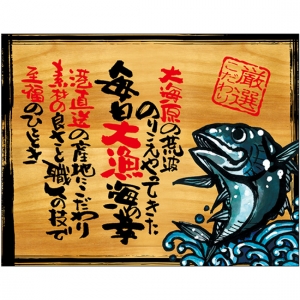 厳選
こだわり
大海原の荒波
のりこえやってきた
毎日大漁海の幸
港直送の産地にこだわり
素材の良さと職人の技で
至福のひととき